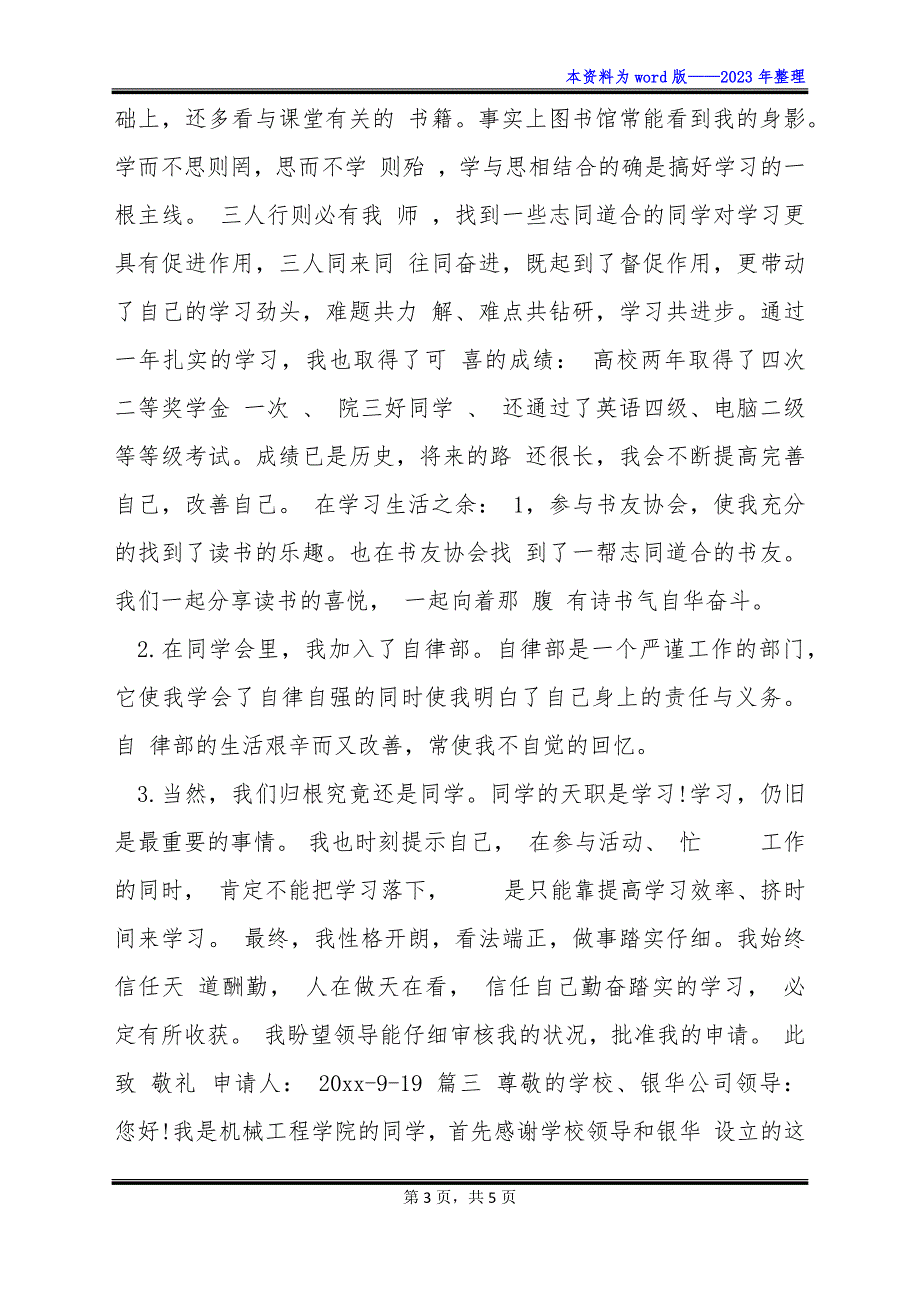 本资料为 word 版——2023 年整理
础上，还多看与课堂有关的 书籍。事实上图书馆常能看到我的身影。
学而不思则罔，思而不学 则殆 ，学与思相结合的确是搞好学习的一
根主线。 三人行则必有我 师 ，找到一些志同道合的同学对学习更
具有促进作用，三人同来同 往同奋进，既起到了督促作用，更带动
了自己的学习劲头，难题共力 解、难点共钻研，学习共进步。通过
一年扎实的学习，我也取得了可 喜的成绩： 高校两年取得了四次
二等奖学金 一次 、 院三好同学 、 还通过了英语四级、电脑二级
等等级考试。成绩已是历史，将来的路 还很长，我会不断提高完善
自己，改善自己。 在学习生活之余： 1，参与书友协会，使我充分
的找到了读书的乐趣。也在书友协会找 到了一帮志同道合的书友。
我们一起分享读书的喜悦， 一起向着那 腹 有诗书气自华奋斗。
2.在同学会里，我加入了自律部。自律部是一个严谨工作的部门，
它使我学会了自律自强的同时使我明白了自己身上的责任与义务。
自 律部的生活艰辛而又改善，常使我不自觉的回忆。
3.当然，我们归根究竟还是同学。同学的天职是学习!学习，仍旧
是最重要的事情。 我也时刻提示自己， 在参与活动、 忙 工作
的同时， 肯定不能把学习落下， 是只能靠提高学习效率、挤时
间来学习。 最终，我性格开朗，看法端正，做事踏实仔细。我始终
信任天 道酬勤， 人在做天在看， 信任自己勤奋踏实的学习， 必
定有所收获。 我盼望领导能仔细审核我的状况，批准我的申请。 此
致 敬礼 申请人： 20xx-9-19 篇三 尊敬的学校、银华公司领导：
您好!我是机械工程学院的同学，首先感谢学校领导和银华 设立的这
第 3 页，共 5 页